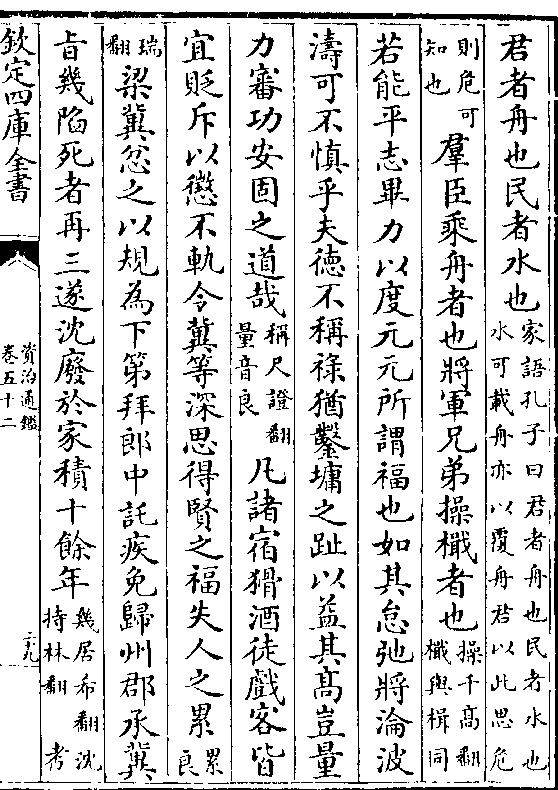 君者舟也民者水也家語孔子曰君者舟也民者水也水可載舟亦以覆舟君以此思危
則危可知也羣臣乘舟者也將軍兄弟操檝者也操千高翻檝與楫同
若能平志畢力以度元元所謂福也如其怠弛將淪波
濤可不慎乎夫德不稱祿猶鑿墉之趾以益其高豈量
力審功安固之道哉稱尺證翻量音良凡諸宿猾酒徒戲客皆
宜貶斥以懲不軌令冀等深思得賢之福失人之累累良
瑞翻梁冀忿之以規為下第拜郎中託疾免歸州郡承冀
旨幾陷死者再三遂沈廢於家積十餘年幾居希翻沈持林翻考
欽定四庫全書
資治通鑑
卷五十二